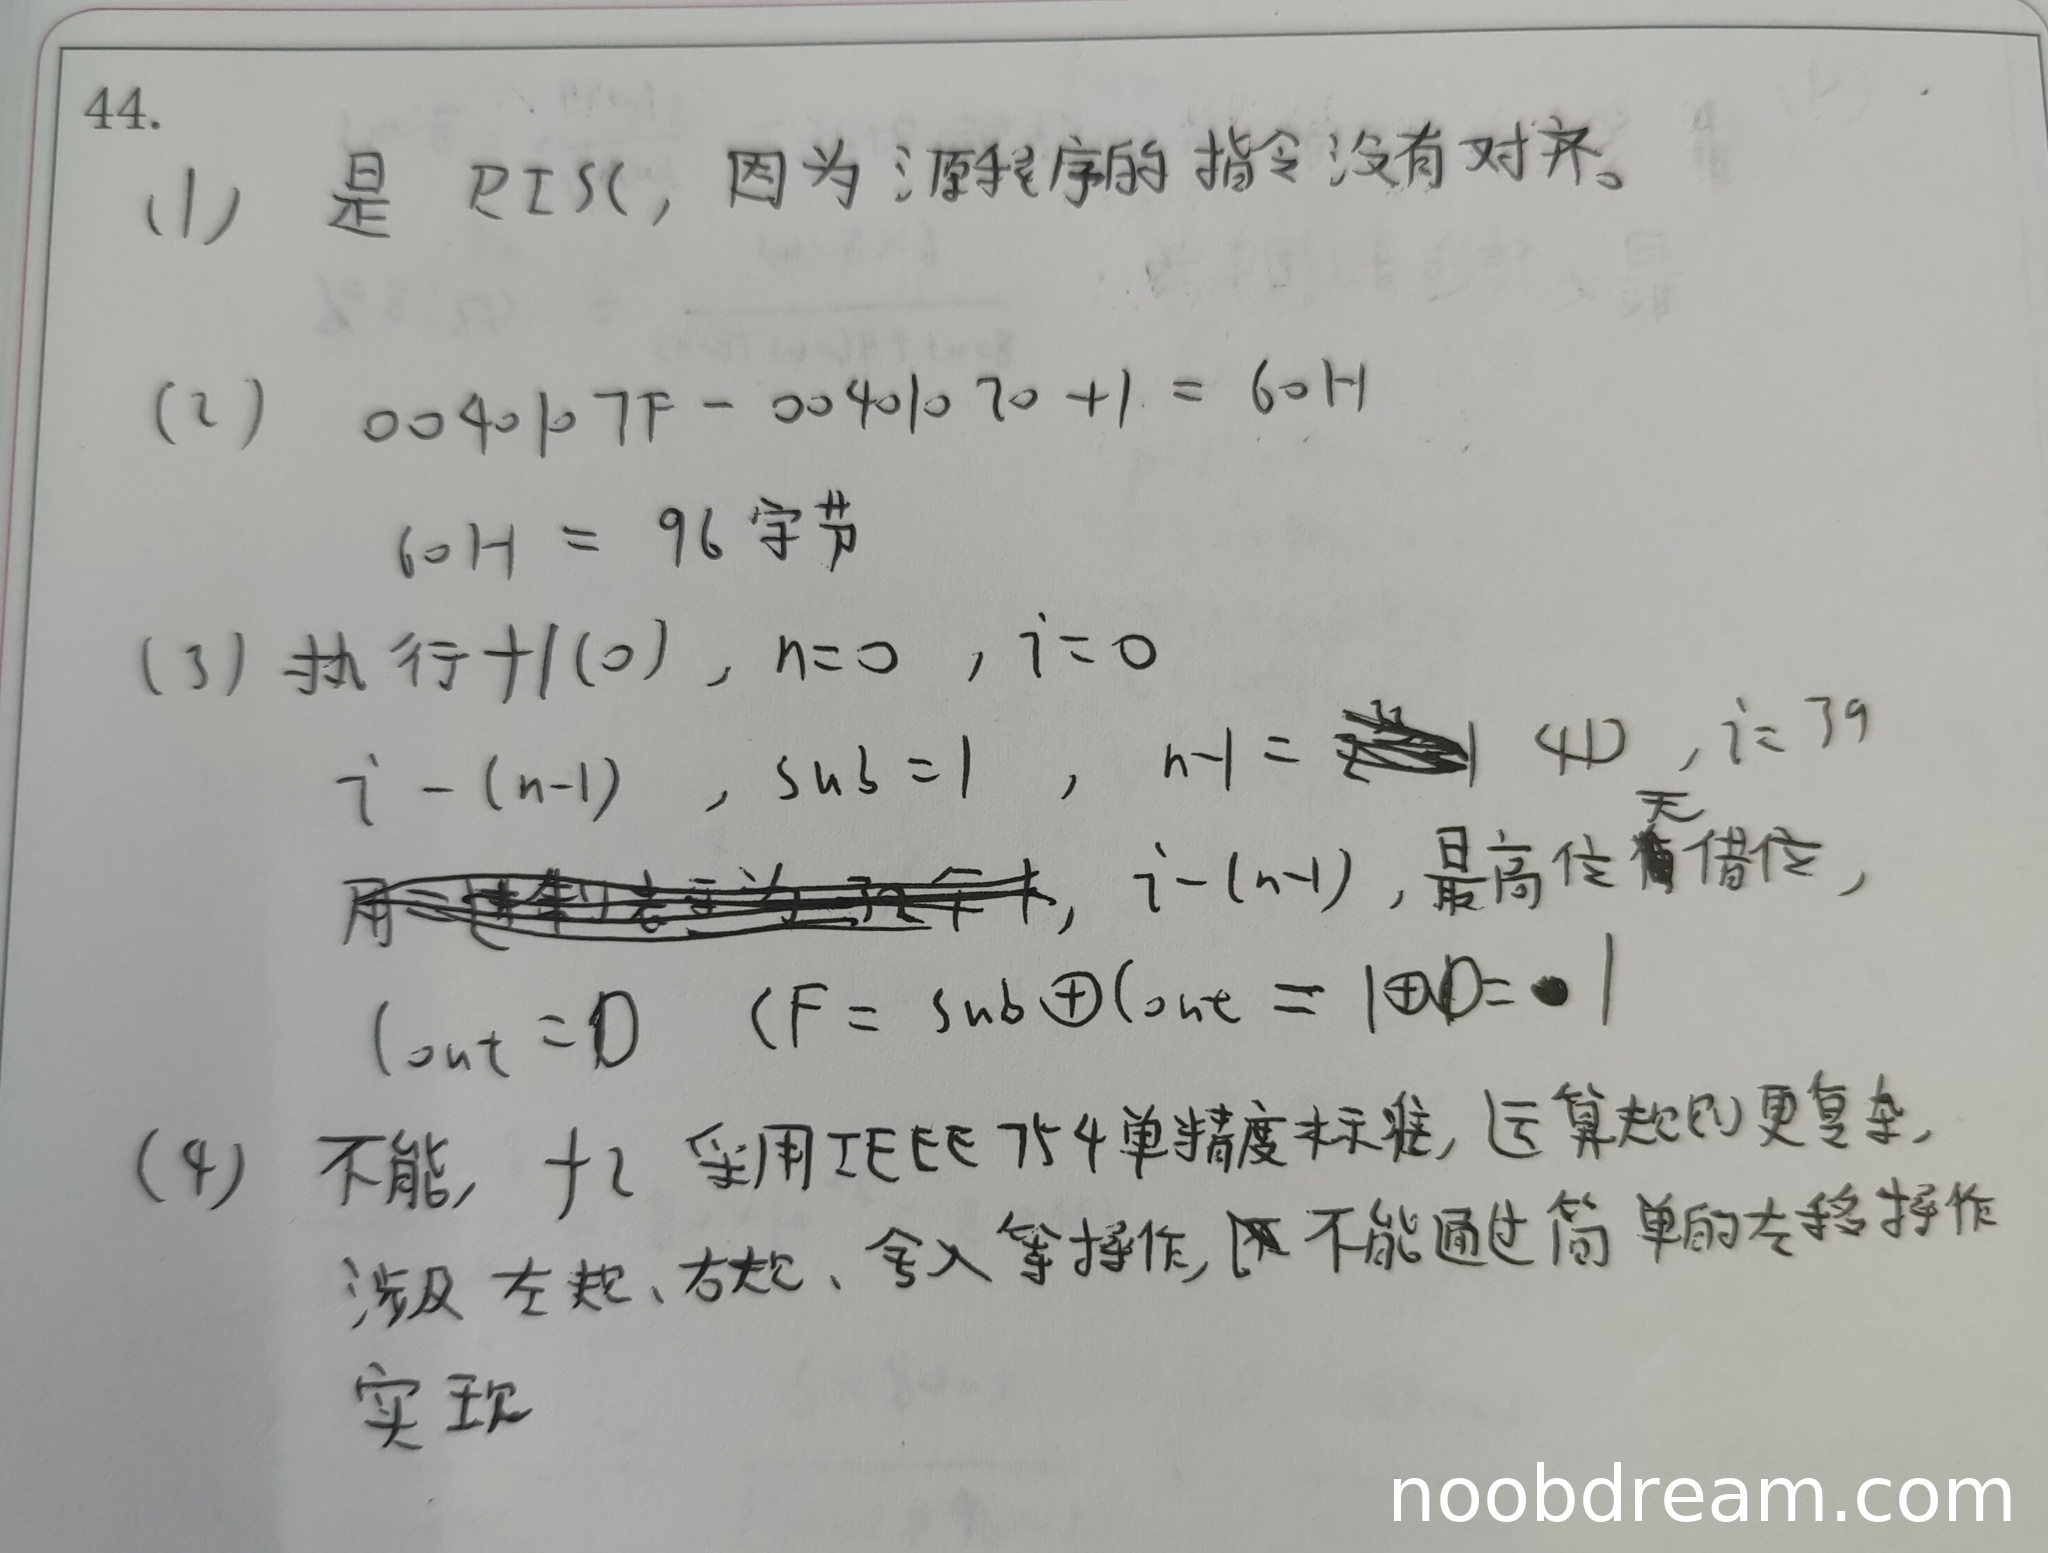 44.
(1) 是 RISC, 因为源程序的指令没有对齐。
(2) 0040107F - 00401020 +1 = 60H
60H = 96字节
(3) 执行 f1(0), n=0, i=0
i - (n-1), sub=1, n-1= 40, i=39
用 i-(n-1), 最高位无借位,
Cout=0 CF= sub⊕Cout = 1⊕0= 1
(4) 不能, f2 采用IEEE754单精度标准, 运算规则更复杂,
涉及左规、右规、舍入等操作, 不能通过简单的左移操作
实现
noobdream.com